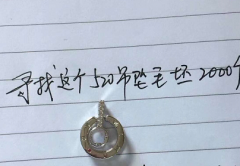 寻找这个520吊坠毛坯2000个